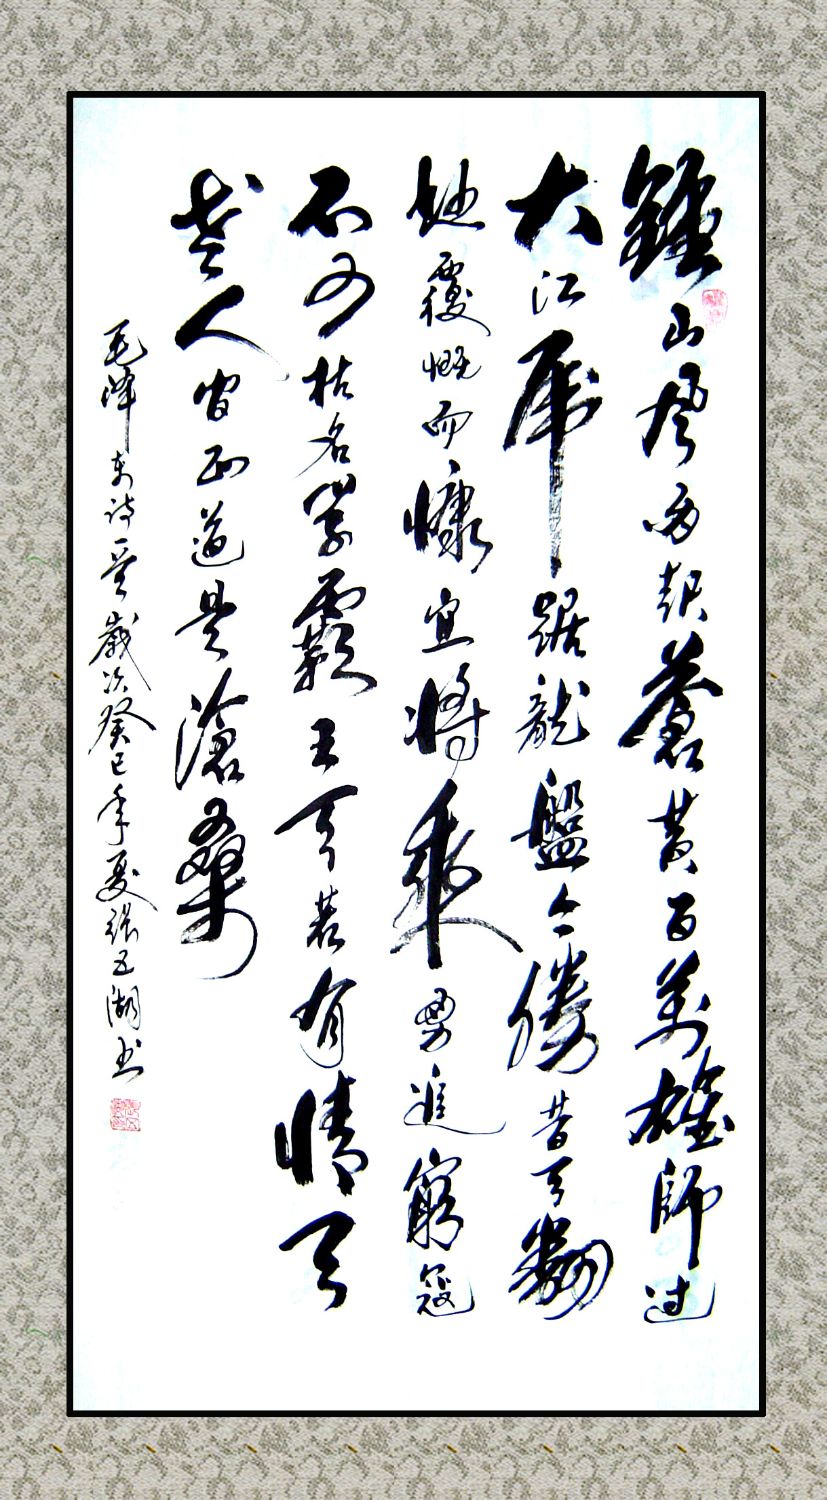 鍾山風雨起蒼黄百萬雄師过
大江虎踞龍盤今勝昔天翻
地覆慨而慷宜將剩勇追窮寇
不可沽名學霸王天若有情天
老人间正道是滄桑
毛泽东诗一首歲次癸巳年夏張五湖书